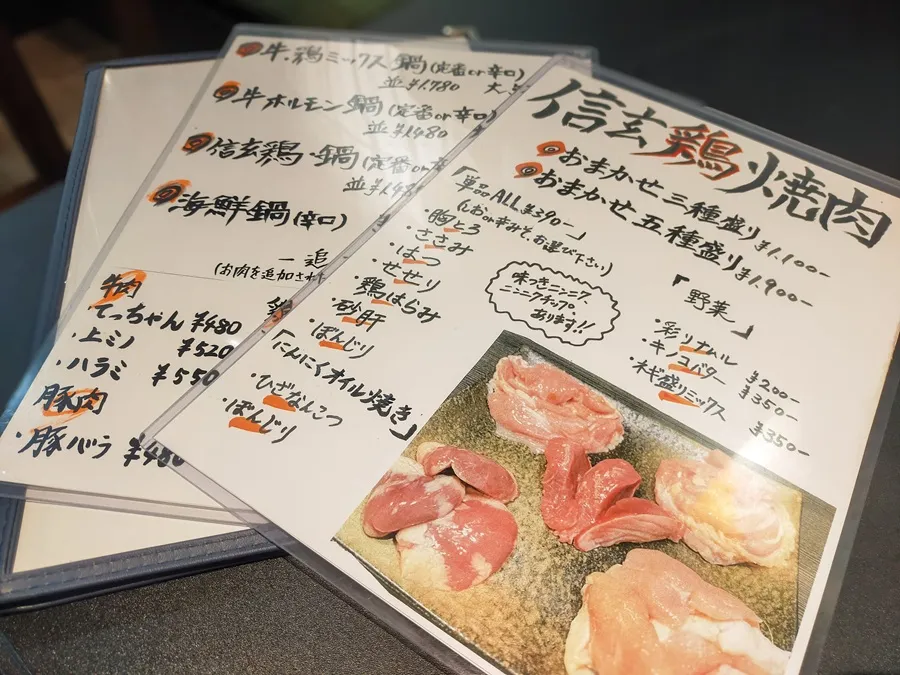 牛・鶏ミックス鍋(定番or辛口)
並 ¥1,780 大
牛ホルモン鍋(定番or辛口)
並 ¥1,480
信玄鶏・鍋(定番or辛
並 ¥1,48
海鮮鍋(辛口)
一追
(お肉を追加され
牛肉
てっちゃん ¥480
・上ミノ ¥520
・ハラミ ¥550
豚肉
・豚バラ ¥480
信玄鶏焼肉
おまかせ三種盛り ¥1,100-
おまかせ五種盛り ¥1,900-
「単品ALL ¥390-」
(しおor辛みそ、お選び下さい)
・胸とろ
・ささみ
・はつ
・せせり
・鶏はらみ
・砂肝
・ぼんじり
「にんにくオイル焼き」
・ひざなんこつ
・ぼんじり
味つきニンニク、
ニンニクチップ、
あります!!
「野菜」
・彩りナムル ¥200-
・キノコバター ¥350-
・ネギ盛りミックス ¥350-